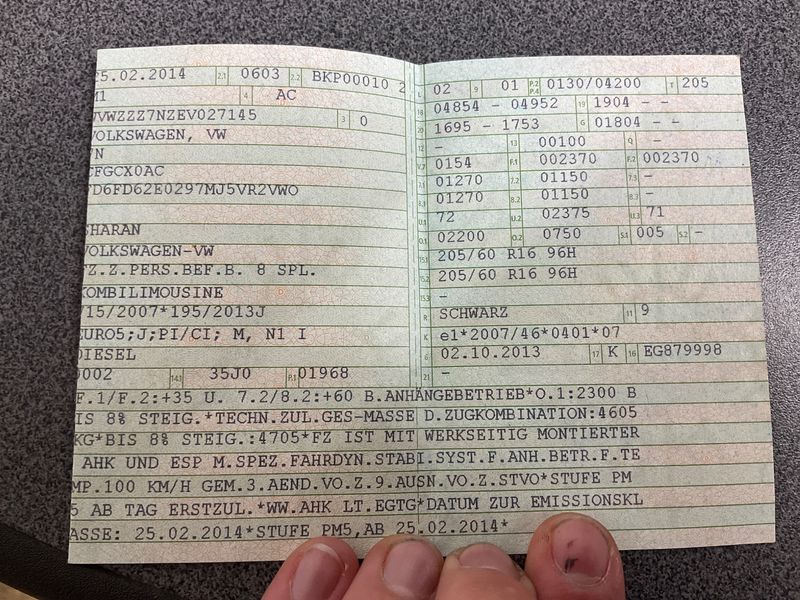 5.02.2014 2.1 0603 2.2 BKP00010 2
M1 4 AC
VWZZZ7NZEV027145 3 0
VOLKSWAGEN, VW
7N
CFGCX0AC
FD6FD62E0297MJ5VR2VWO
SHARAN
VOLKSWAGEN-VW
FZ.Z.PERS.BEF.B. 8 SPL.
KOMBILIMOUSINE
715/2007*195/2013J
EURO5;J;PI/CI; M, N1 I
DIESEL
0002 14.1 35J0 P.1 01968
L 02 9 01 P.2 P.4 0130/04200 T 205
18 04854 - 04952 19 1904 - -
20 1695 - 1753 G 01804 - -
12 - 13 00100 Q -
V.7 0154 F.1 002370 F.2 002370
7.1 01270 7.2 01150 7.3 -
8.1 01270 8.2 01150 8.3 -
U.1 72 U.2 02375 U.3 71
O.1 02200 O.2 0750 S.1 005 S.2 -
15.1 205/60 R16 96H
15.2 205/60 R16 96H
15.3 -
R SCHWARZ 11 9
K e1*2007/46*0401*07
6 02.10.2013 17 K 16 EG879998
21 -
F.1/F.2:+35 U. 7.2/8.2:+60 B.ANHÄNGEBETRIEB*O.1:2300 B
IS 8% STEIG.*TECHN.ZUL.GES-MASSE D.ZUGKOMBINATION:4605
KG*BIS 8% STEIG.:4705*FZ IST MIT WERKSEITIG MONTIERTER
AHK UND ESP M.SPEZ.FAHRDYN.STABI.SYST.F.ANH.BETR.F.TE
MP.100 KM/H GEM.3.AEND.VO.Z.9.AUSN.VO.Z.STVO*STUFE PM
5 AB TAG ERSTZUL.*WW.AHK LT.EGTG*DATUM ZUR EMISSIONSKL
ASSE: 25.02.2014*STUFE PM5,AB 25.02.2014*